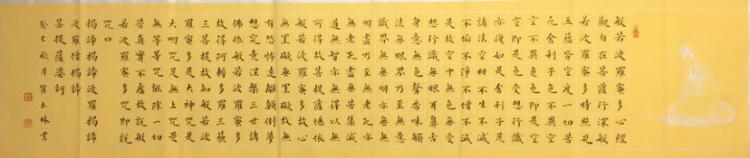 般若波羅蜜多心經
觀自在菩薩行深般
若波羅蜜多時照見
五蘊皆空度一切苦
厄舍利子色不異空
空不異色色即是空
空即是色受想行識
亦復如是舍利子是
諸法空相不生不滅
不垢不淨不增不減
是故空中無色無受
想行識無眼耳鼻舌
身意無色聲香味觸
法無眼界乃至無意
識界無無明亦無無
明盡乃至無老死亦
無老死盡無苦集滅
道無智亦無得以無
所得故菩提薩埵依
般若波羅蜜多故心
無罣礙無罣礙故無
有恐怖遠離顛倒夢
想究竟涅槃三世諸
佛依般若波羅蜜多
故得阿耨多羅三藐
三菩提故知般若波
羅蜜多是大神咒是
大明咒是無上咒是
無等等咒能除一切
苦真實不虛故說般
若波羅蜜多咒即說
咒曰
揭諦揭諦波羅揭諦
波羅僧揭諦
菩提薩婆訶
癸巳秋月書